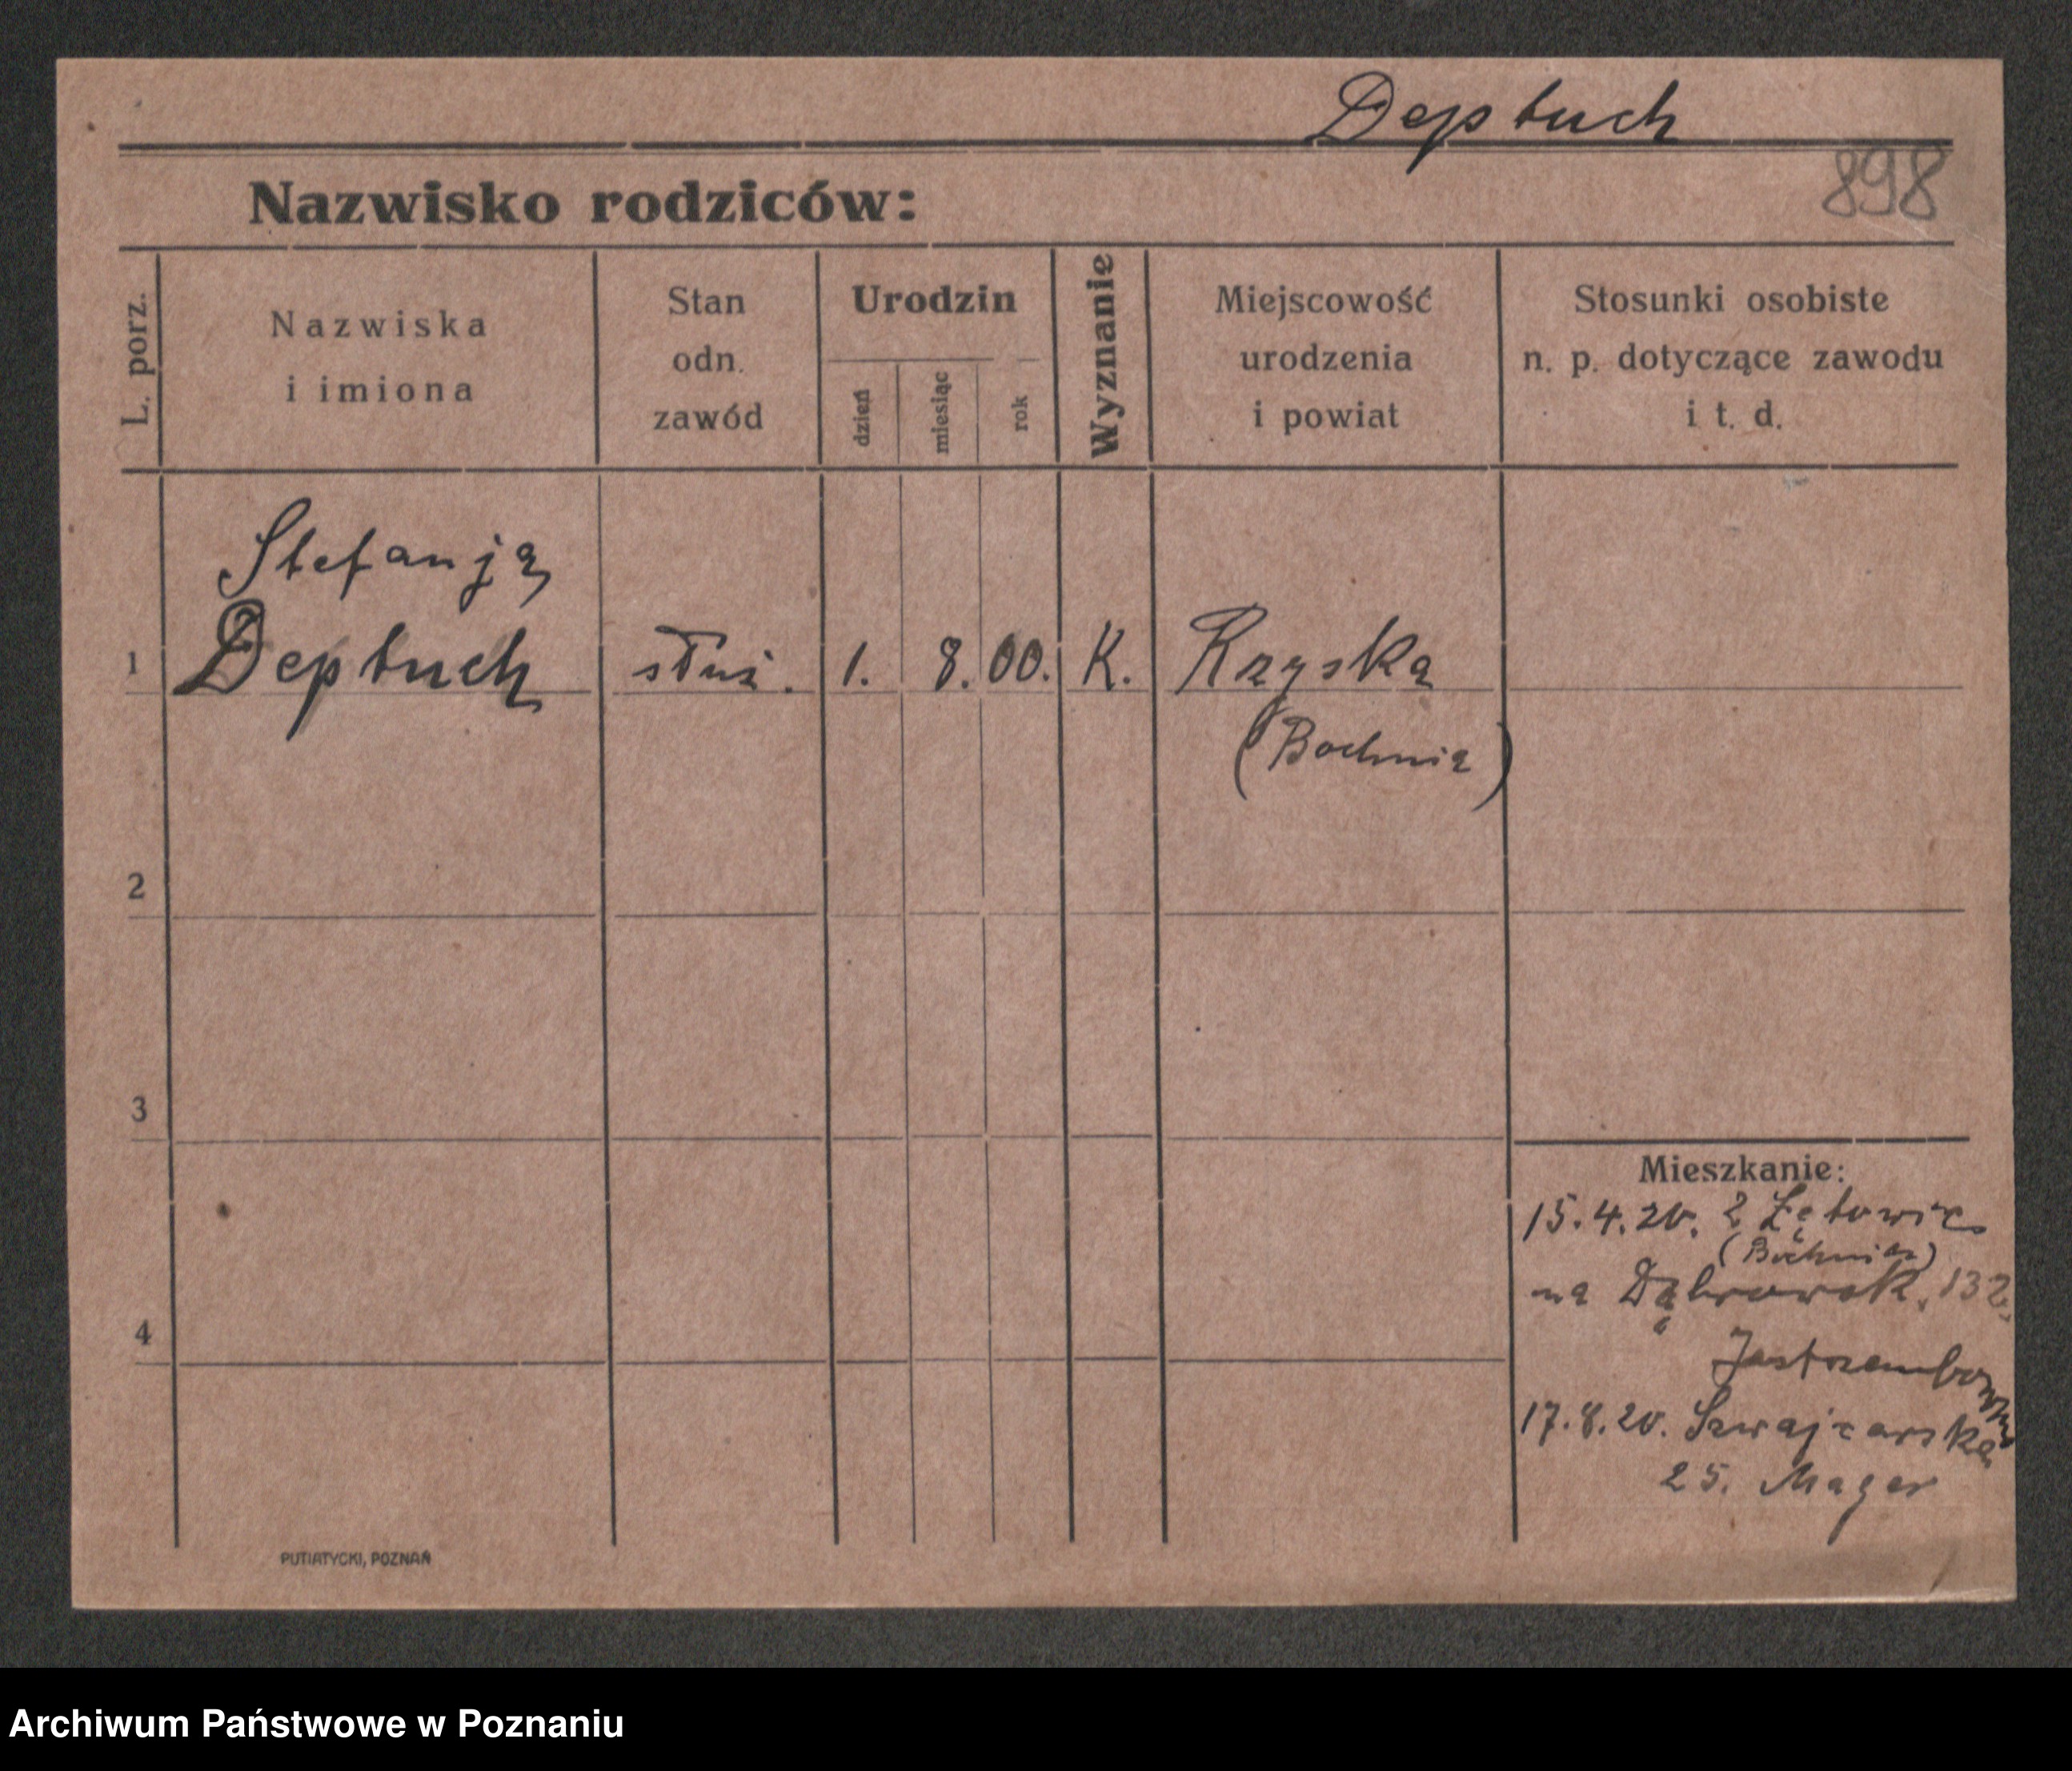 Deptuch
898
Nazwisko rodziców:
L. porz.
Nazwiska
i imiona
Stan
odn.
zawód
Urodzin
dzień
miesiąc
rok
Wyznanie
Miejscowość
urodzenia
i powiat
Stosunki osobiste
n. p. dotyczące zawodu
i t. d.
Stefanja
1 Deptuch służ. 1. 8. 00. K. Rzyska
(Bochnia)
2
3
4
Mieszkanie:
15.4.20. z Łętowic
(Bochnia)
na Dąbrowsk. 132
17.8.20. Szwajcarska
25. Mager
PUTIATYCKI, POZNAŃ
Archiwum Państwowe w Poznaniu